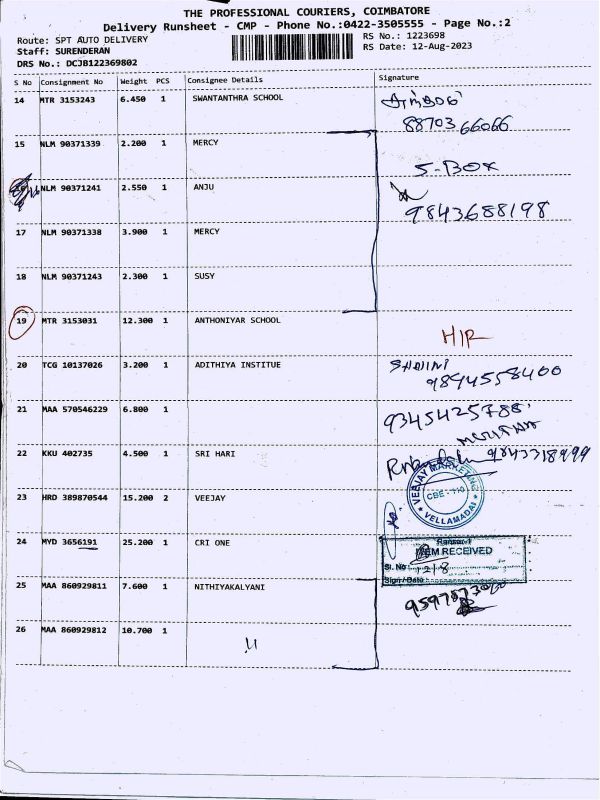 THE PROFESSIONAL COURIERS, COIMBATORE
Delivery Runsheet - CMP - Phone No.:0422-3505555 - Page No.:2
Route: SPT AUTO DELIVERY
Staff: SURENDERAN
DRS No.: DCJB122369802
RS No.: 1223698
RS Date: 12-Aug-2023
S No Consignment No Weight PCS Consignee Details Signature
14 MTR 3153243 6.450 1 SWANTANTHRA SCHOOL
8870366066
15 NLM 90371339 2.200 1 MERCY
5-BOX
NLM 90371241 2.550 1 ANJU
9843688198
17 NLM 90371338 3.900 1 MERCY
18 NLM 90371243 2.300 1 SUSY
19 MTR 3153031 12.300 1 ANTHONIYAR SCHOOL
20 TCG 10137026 3.200 1 ADITHIYA INSTITUE
9894558400
21 MAA 570546229 6.800 1
9345425788
22 KKU 402735 4.500 1 SRI HARI
23 HRD 389870544 15.200 2 VEEJAY
VEEJAY MARKETING
CBE - 110
VELLAMADAI
24 MYD 3656191 25.200 1 CRI ONE
ITEM RECEIVED
Sl. No
12/8
Sign / Date
25 MAA 860929811 7.600 1 NITHIYAKALYANI
26 MAA 860929812 10.700 1